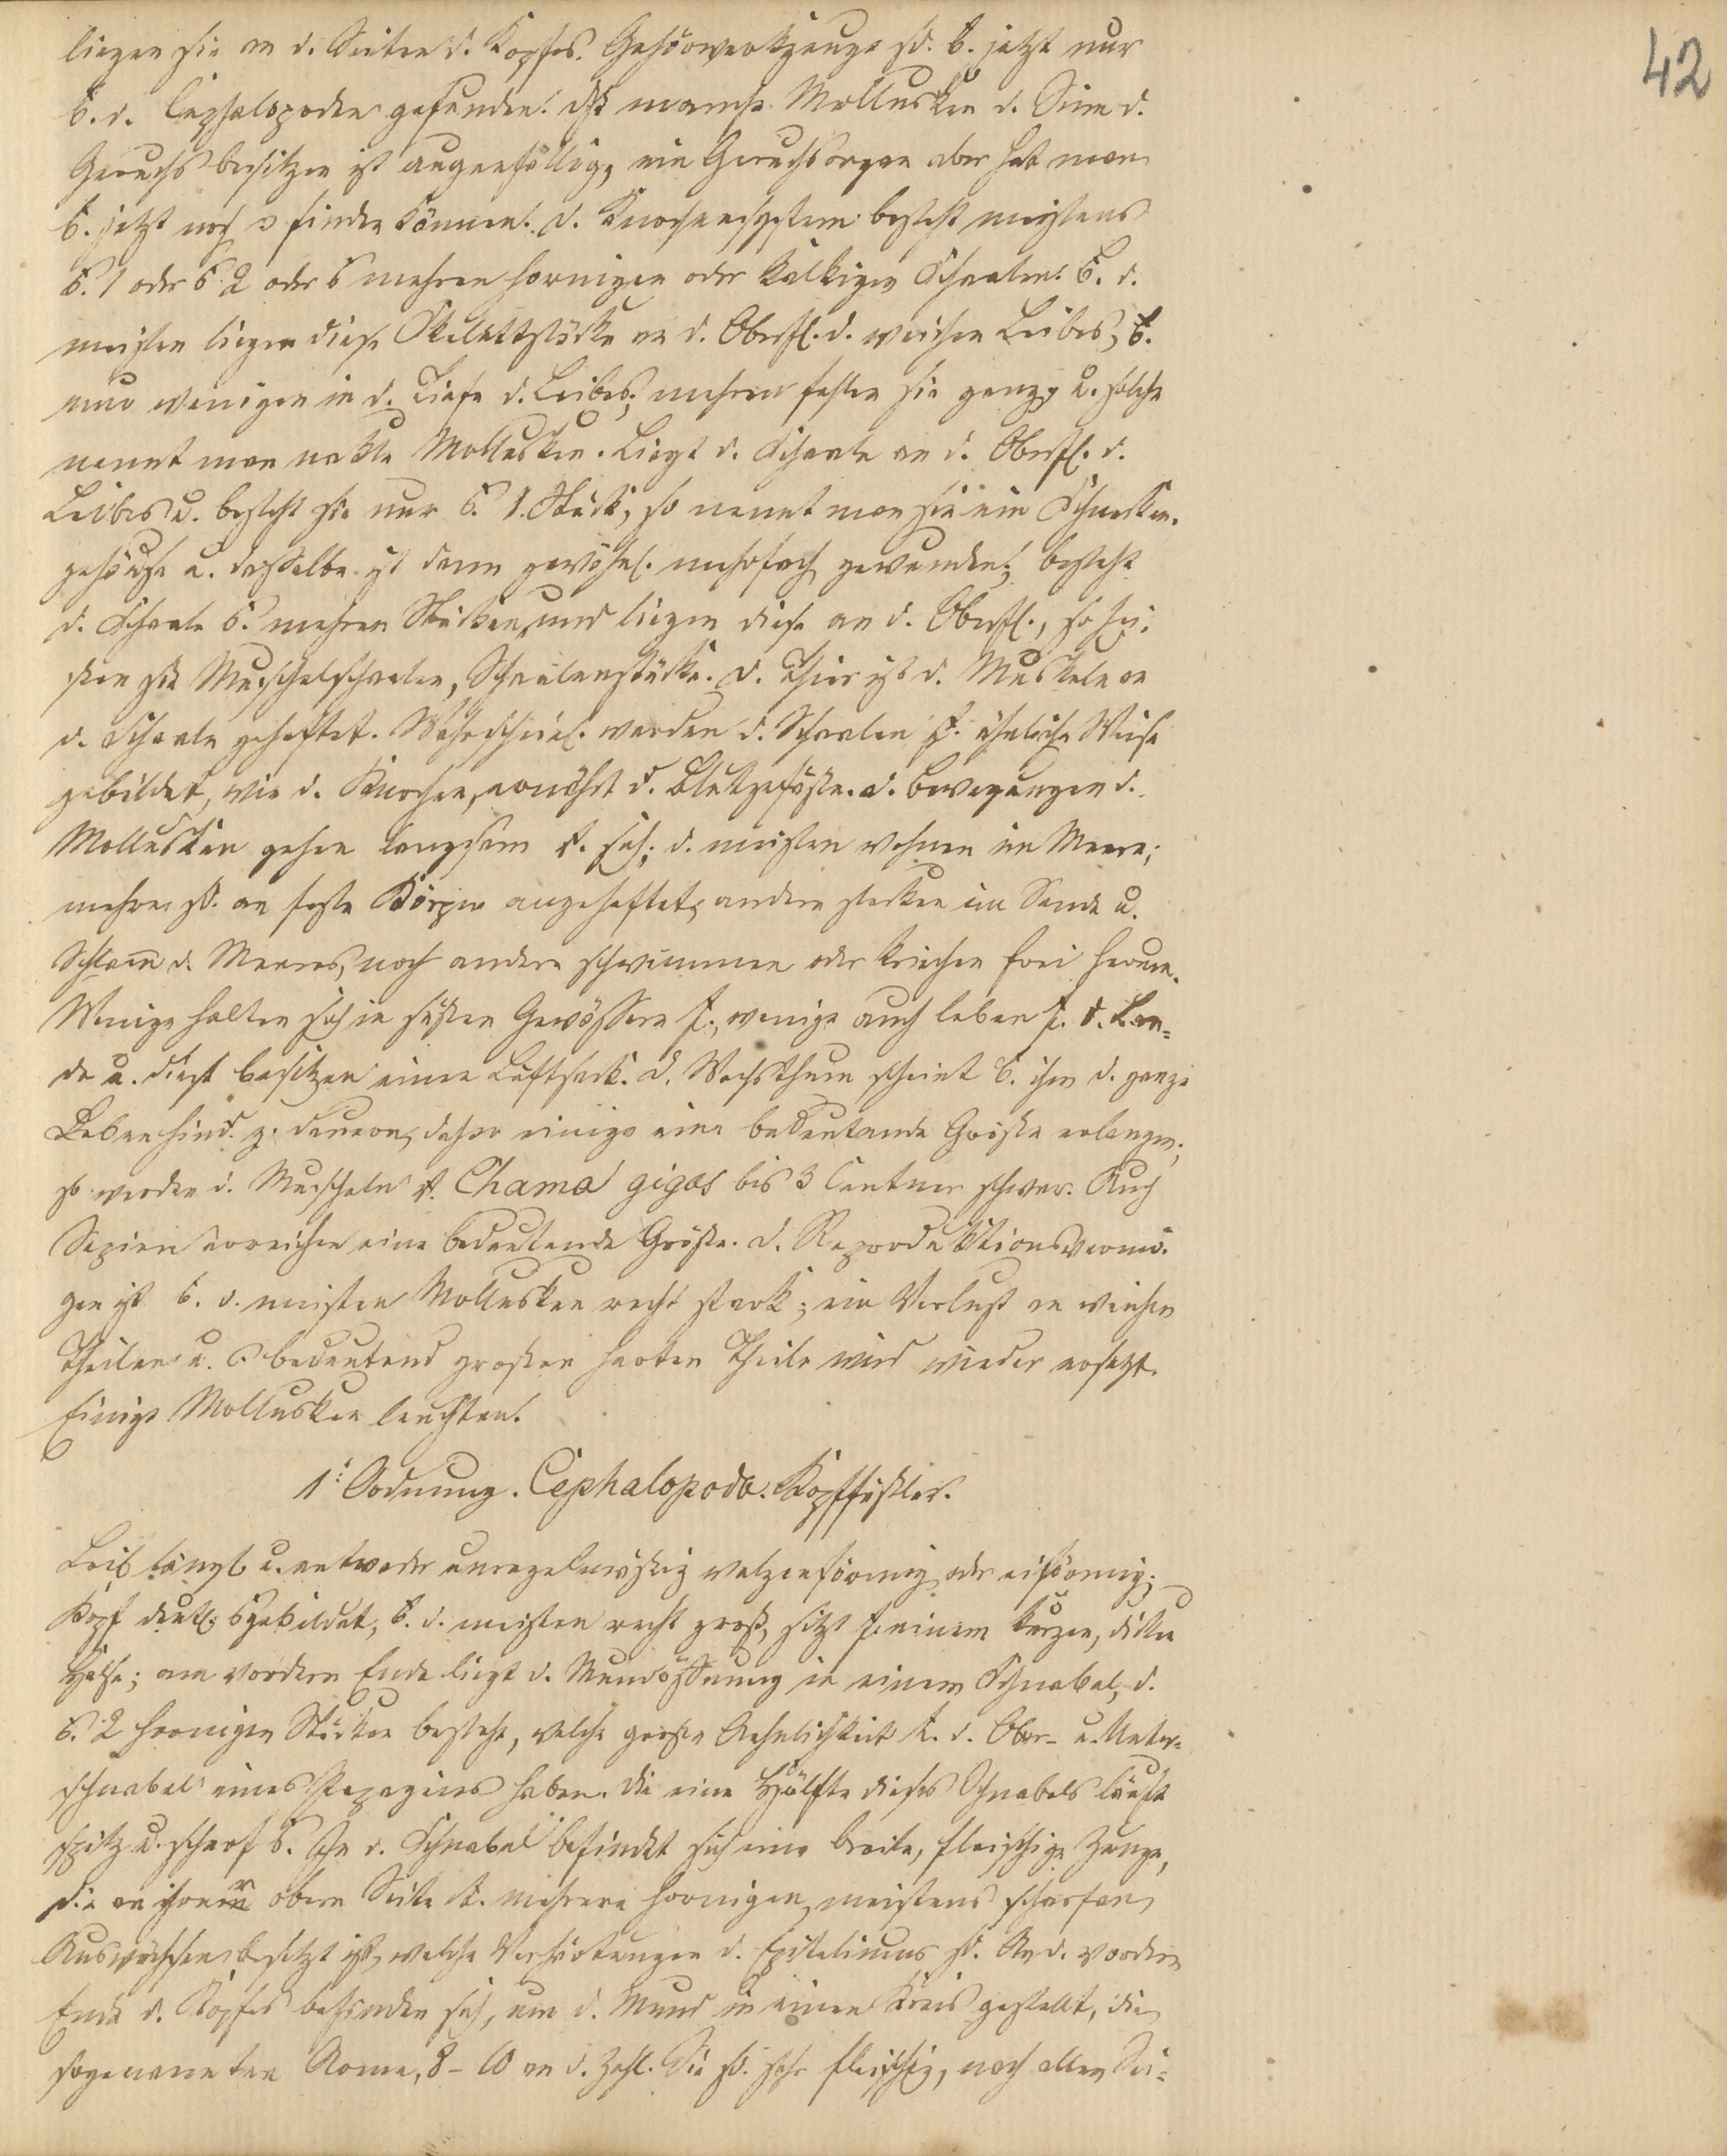 42
liegen sie an d. Seiten d. Kopfes. Gehörwerkzeuge sd. b. jetzt nur
b. d. Cephalopoden gefunden. Daß manche Mollusken d. Sinn d.
Geruchs besitzen ist augenfällig, ein Geruchsorgan aber hat man
b. jetzt noch finden können. D. Knochensystem besteht meistens
1 oder 2 oder mehren hornigen oder kalkigen Schaalen. B. d.
meisten liegen diese Skelettstücke an d. Oberfl. d. weichen Leibes, b.
nur wenigen in d. Tiefe d. Leibes, mehren fehlen sie ganz, u. solche
nennt man nackte Mollusken. Liegt d. Schaale an d. Oberfl. d.
Leibes u. besteht sie nur 1. Stück, so nennt man sie ein Schnecken-
gehäuse u. dasselbe ist dann gewöhnl. mehrfach gewunden; besteht
d. Schaale mehren Stücken, und liegen diese an d. Oberfl., so hei-
ßen sie Muschelschaalen, Schaalenstücke. D. Thier ist d. Muskeln an
d. Schaale geheftet. Wahrscheinl. werden d. Schaalen ähnliche Weise
gebildet, wie d. Knochen, ernährt d. Blutgefäße. D. Bewegungen d.
Mollusken gehen langsam sich; d. meisten wohnen im Meere;
mehre sd. an feste Körper angeheftet, andere stecken im Sande u.
Schlam d. Meeres, noch andere schwimmen oder kriechen frei herum.
Wenige halten sich in süßen Gewässern, wenige auch leben d. Lan-
de u. diese besitzen einen Luftsack. D. Wachsthum scheint b. ihn d. ganze
Leben hind. z. dauern, daher einige eine bedeutende Größe erlangen;
so werden d. Muscheln Chama gigas bis 3 Centner schwer. Auch
Sepien erreichen eine bedeutende Größe. D. Reproduktionsvermö-
gen ist b. d. meisten Mollusken recht stark; ein Verlust an weichen
Theilen u. bedeutend großen harten Theile wird wieder ersetzt.
Einige Mollusken leuchten.
1: Ordnung. Cephalopoda. Kopffüßler.
Leib längl. u. entweder unregelmäßig walzenförmig oder eiförmig;
Kopf deutl. gebildet, b. d. meisten recht groß, sitzt einem kurzen, dicken
Halse; am vordern Ende liegt d. Mundöffnung in einem Schnabel, d.
2 hornigen Stücken besteht, welche große Aehnlichkeit d. Ober- u. Unter-
schnabel eines Papageies haben. Die eine Hälfte dieses Schnabels läuft
spitz u. scharf. In d. Schnabel befindet sich eine breite, fleischige Zunge,
die an ihrer obern Seite mehrere hornigen, meistens scharfen
Auswüchsen besetzt ist, welche Verhärtungen d. Epitheliums sd. An d. vordern
Ende d. Kopfes befinden sich, um d. Mund in einen Kreis gestellt, die
sogenannten Arme, 8-10 an d. Zahl. Sie sd. sehr fleischig, nach allen Sei-